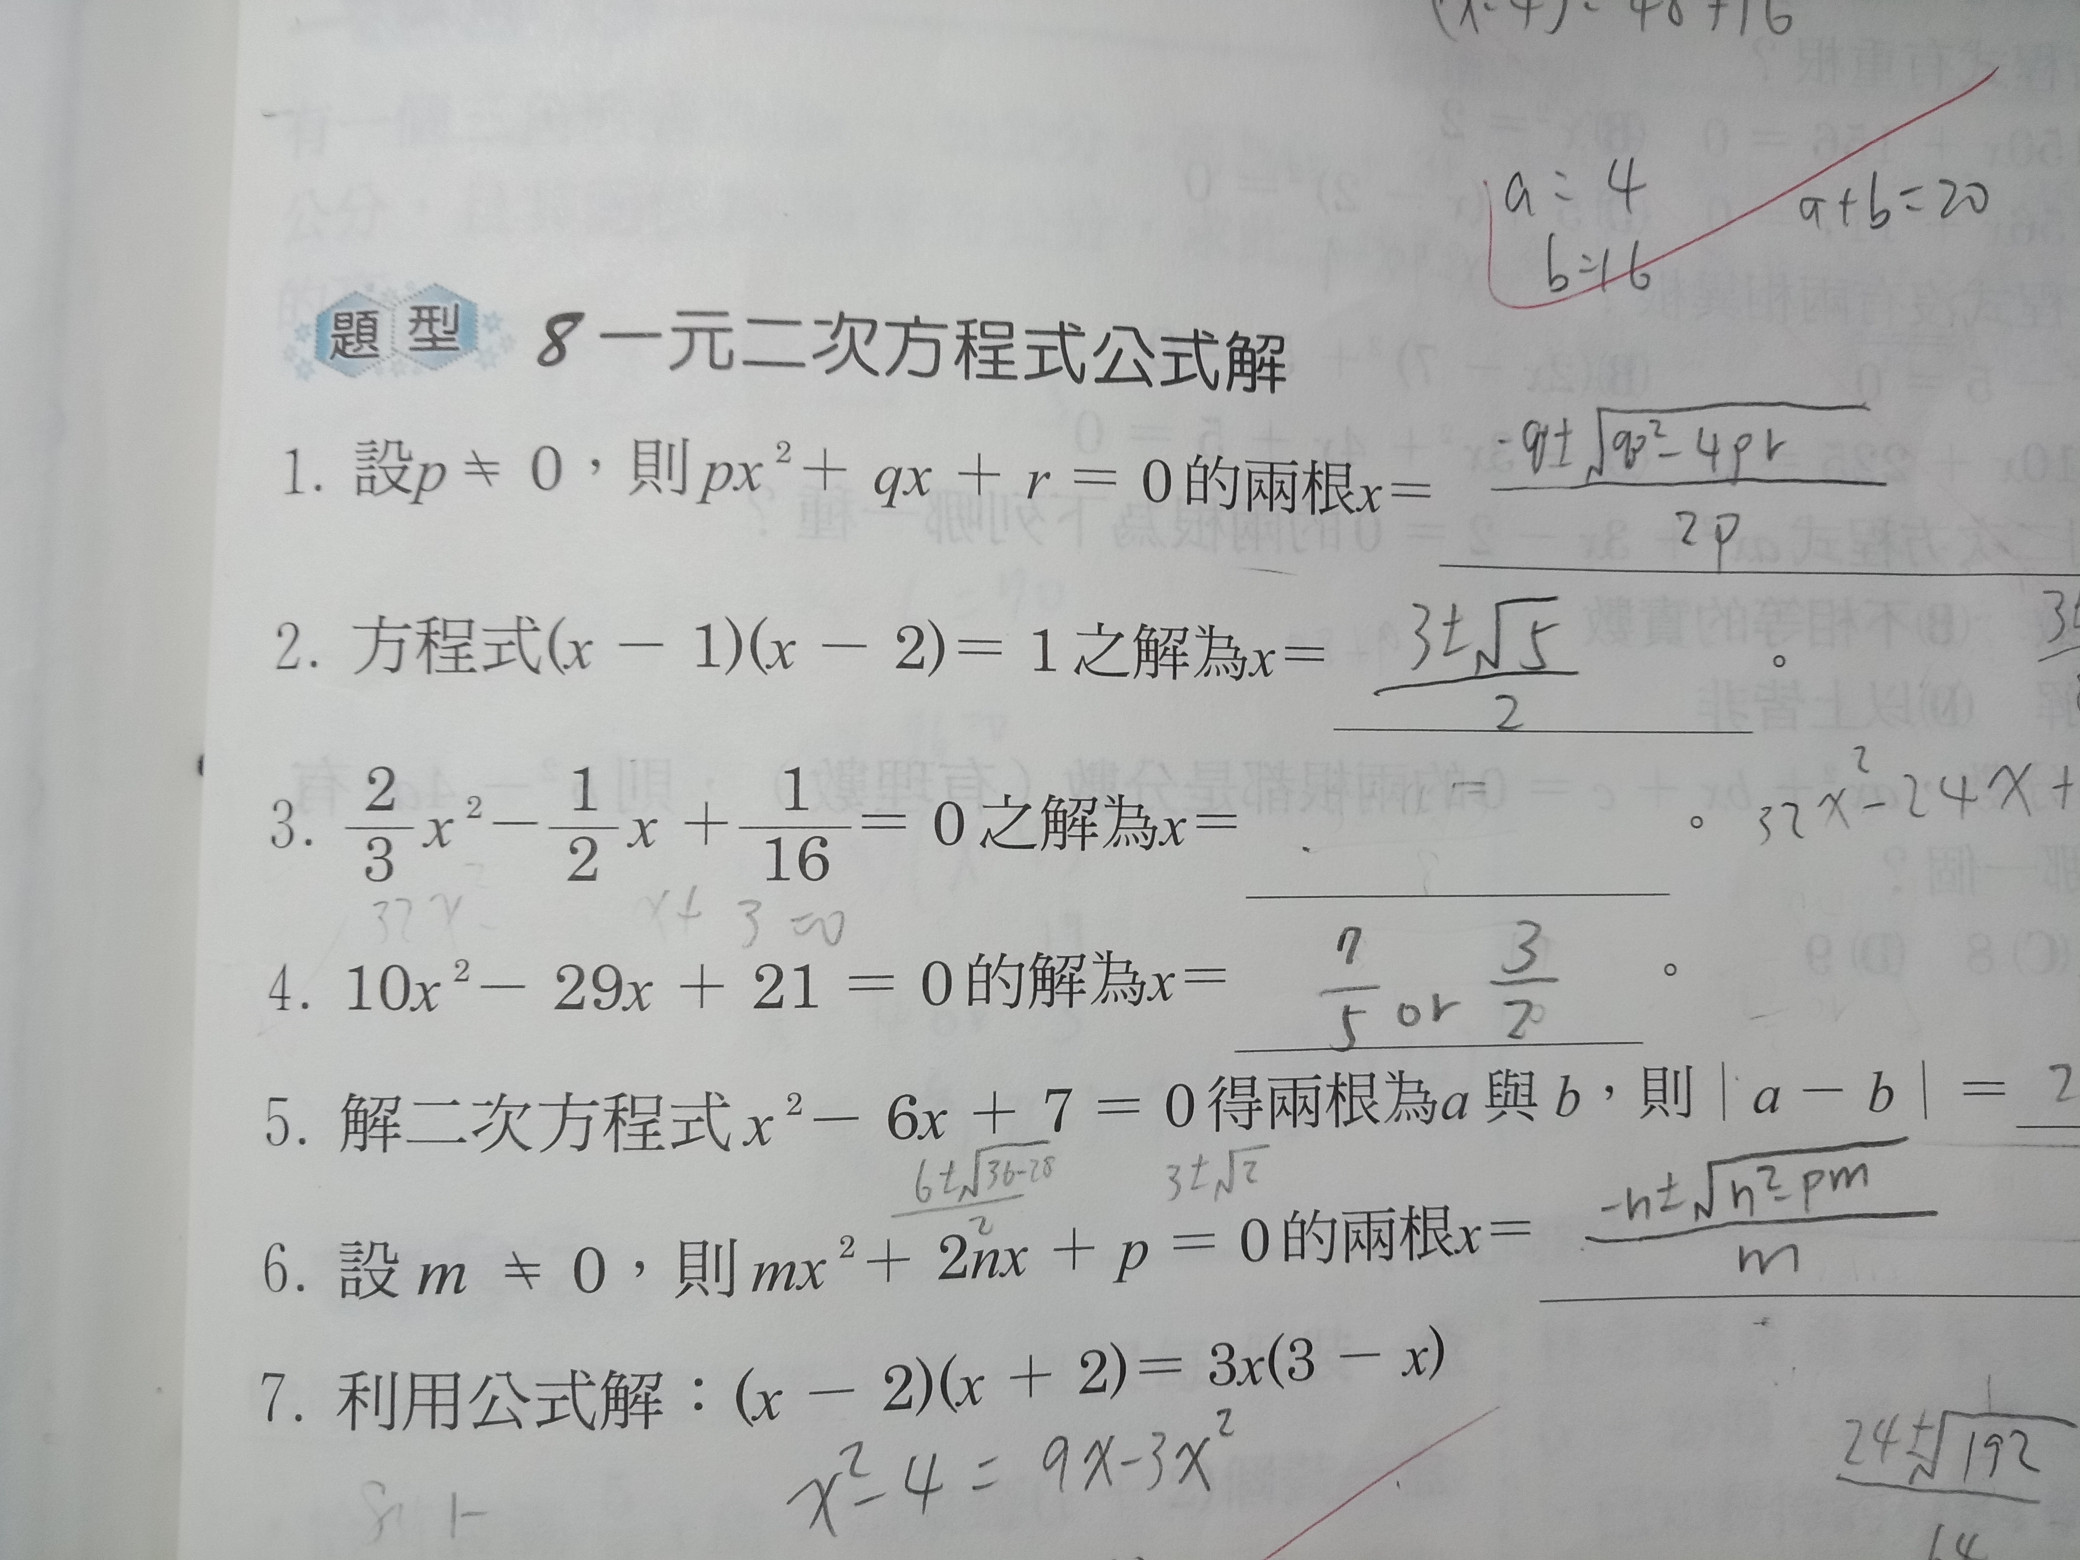 a = 4
a+b=20
b=16
題型 8 一元二次方程式公式解
1. 設p ≠ 0，則px²+ qx + r = 0的兩根x= (-q±√(q²-4pr))/(2p)
2. 方程式(x − 1)(x − 2)= 1之解為x= (3±√5)/2 。
3. 2/3 x²− 1/2 x + 1/16 = 0之解為x= 。 32x²-24x+
32x²- x+ 3 =0
4. 10x²− 29x + 21 = 0的解為x= 7/5 or 3/2 。
5. 解二次方程式x²− 6x + 7 = 0得兩根為a與b，則|a − b| = 2
(6±√(36-28))/2 3±√2
6. 設m ≠ 0，則mx²+ 2nx + p = 0的兩根x= (-n±√(n²-pm))/m
7. 利用公式解：(x − 2)(x + 2)= 3x(3 − x)
x²-4 = 9x-3x²
(24±√192)/64